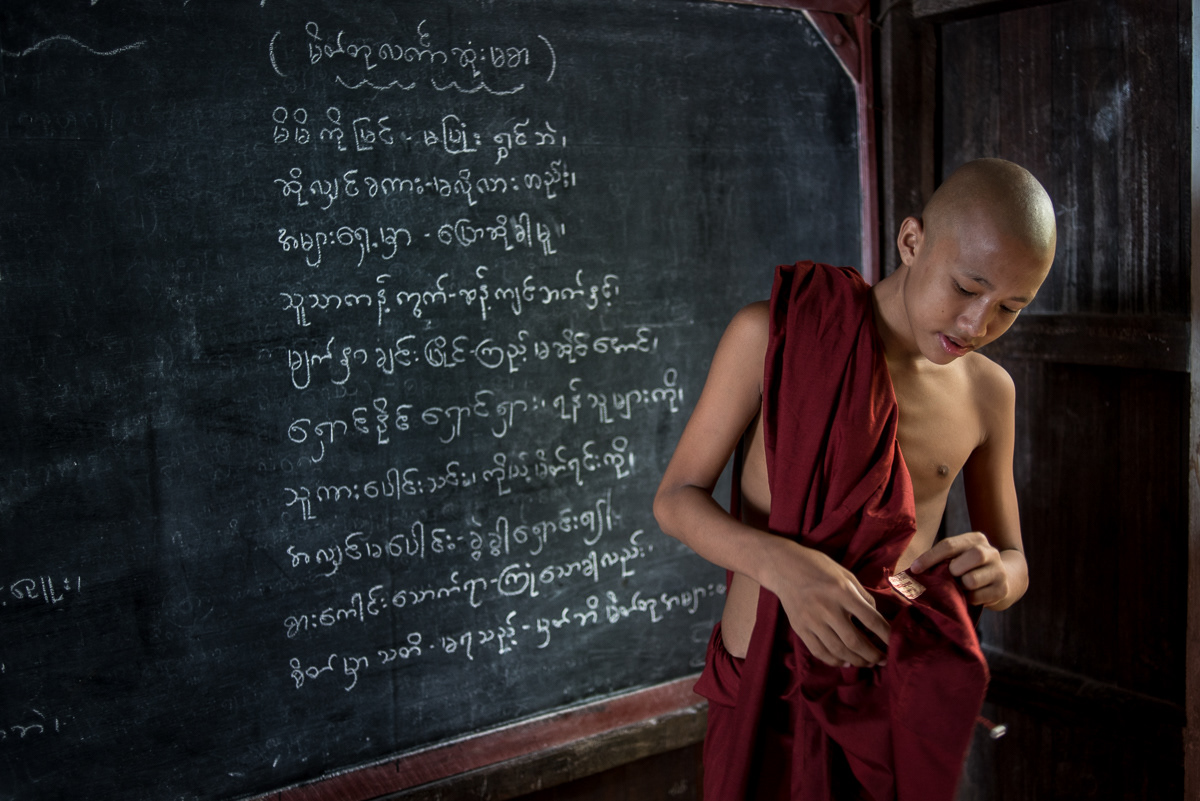 (မိတ်တုလင်္ကာဆုံးမစာ)
မိမိကိုမြင် - မပြုံးရွှင်ဘဲ၊
ဆိုလျှင်စကား - ခလိုလားတည်း၊
အများရှေ့မှာ - ပြောဆိုခါမူ၊
သူသာတန့်ကွက် - ဆန့်ကျင်ဘက်နှင့်၊
မျက်နှာချင်းပြိုင် - ကြည့်မဆိုင်အောင်၊
ရှောင်နိုင်ရှောင်ရှား၊ ရန်သူများကို၊
သူကားပေါင်းသင်း၊ ကိုယ့်မိတ်ရင်းကို၊
အလျှင်မပေါင်း - ခွဲခွါရှောင်း၍၊
နားကောင်းသောက်ရာ - ကြုံသောခါလည်း၊
စိတ်မှာသတိ - မရသည့် - မှတ်ဘိမိတ်တုအများ
ဘဲ၊